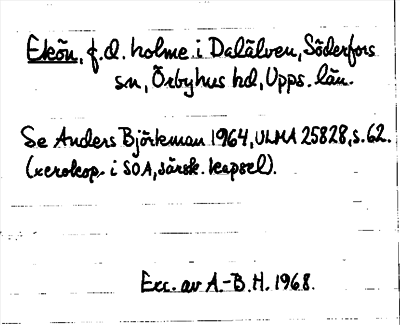 Ekön, f.d. holme i Dalälven, Söderfors
sn, Örbyhus hd, Upps. län.
Se Anders Björkman 1964, ULMA 25828, s. 62.
(xerokop. i SOA, särsk. kapsel).
Exc. av A.-B.H. 1968.